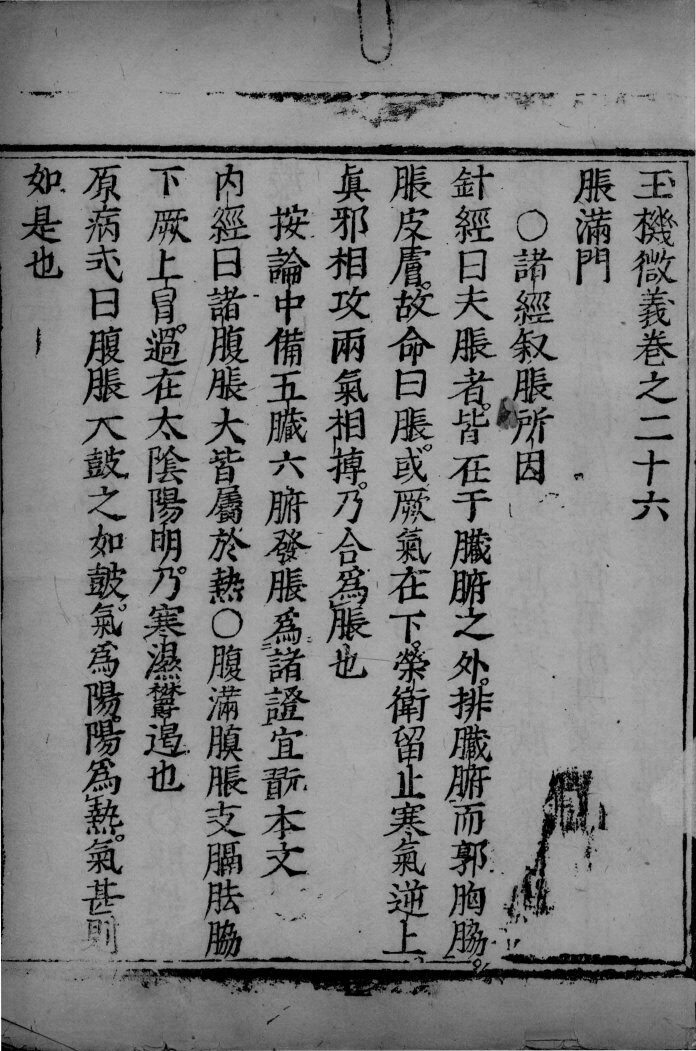 玉機微義卷之二十六
脹滿門
○諸經叙脹所因
針經曰夫脹者。皆在于臟腑之外。排臟腑而郭胸脇。
脹皮膚。故命曰脹。或厥氣在下。榮衛留止寒氣逆上
眞邪相攻兩氣相搏。乃合爲脹也
按論中備五臟六腑發脹爲諸證宜翫本文
内經曰諸腹脹大皆屬於熱○腹滿䐜脹支膈胠脇
下厥上冒。過在太陰陽明。乃寒濕鬱遏也
原病式曰腹脹大鼓之如鼓。氣爲陽。陽爲熱。氣甚則
如是也